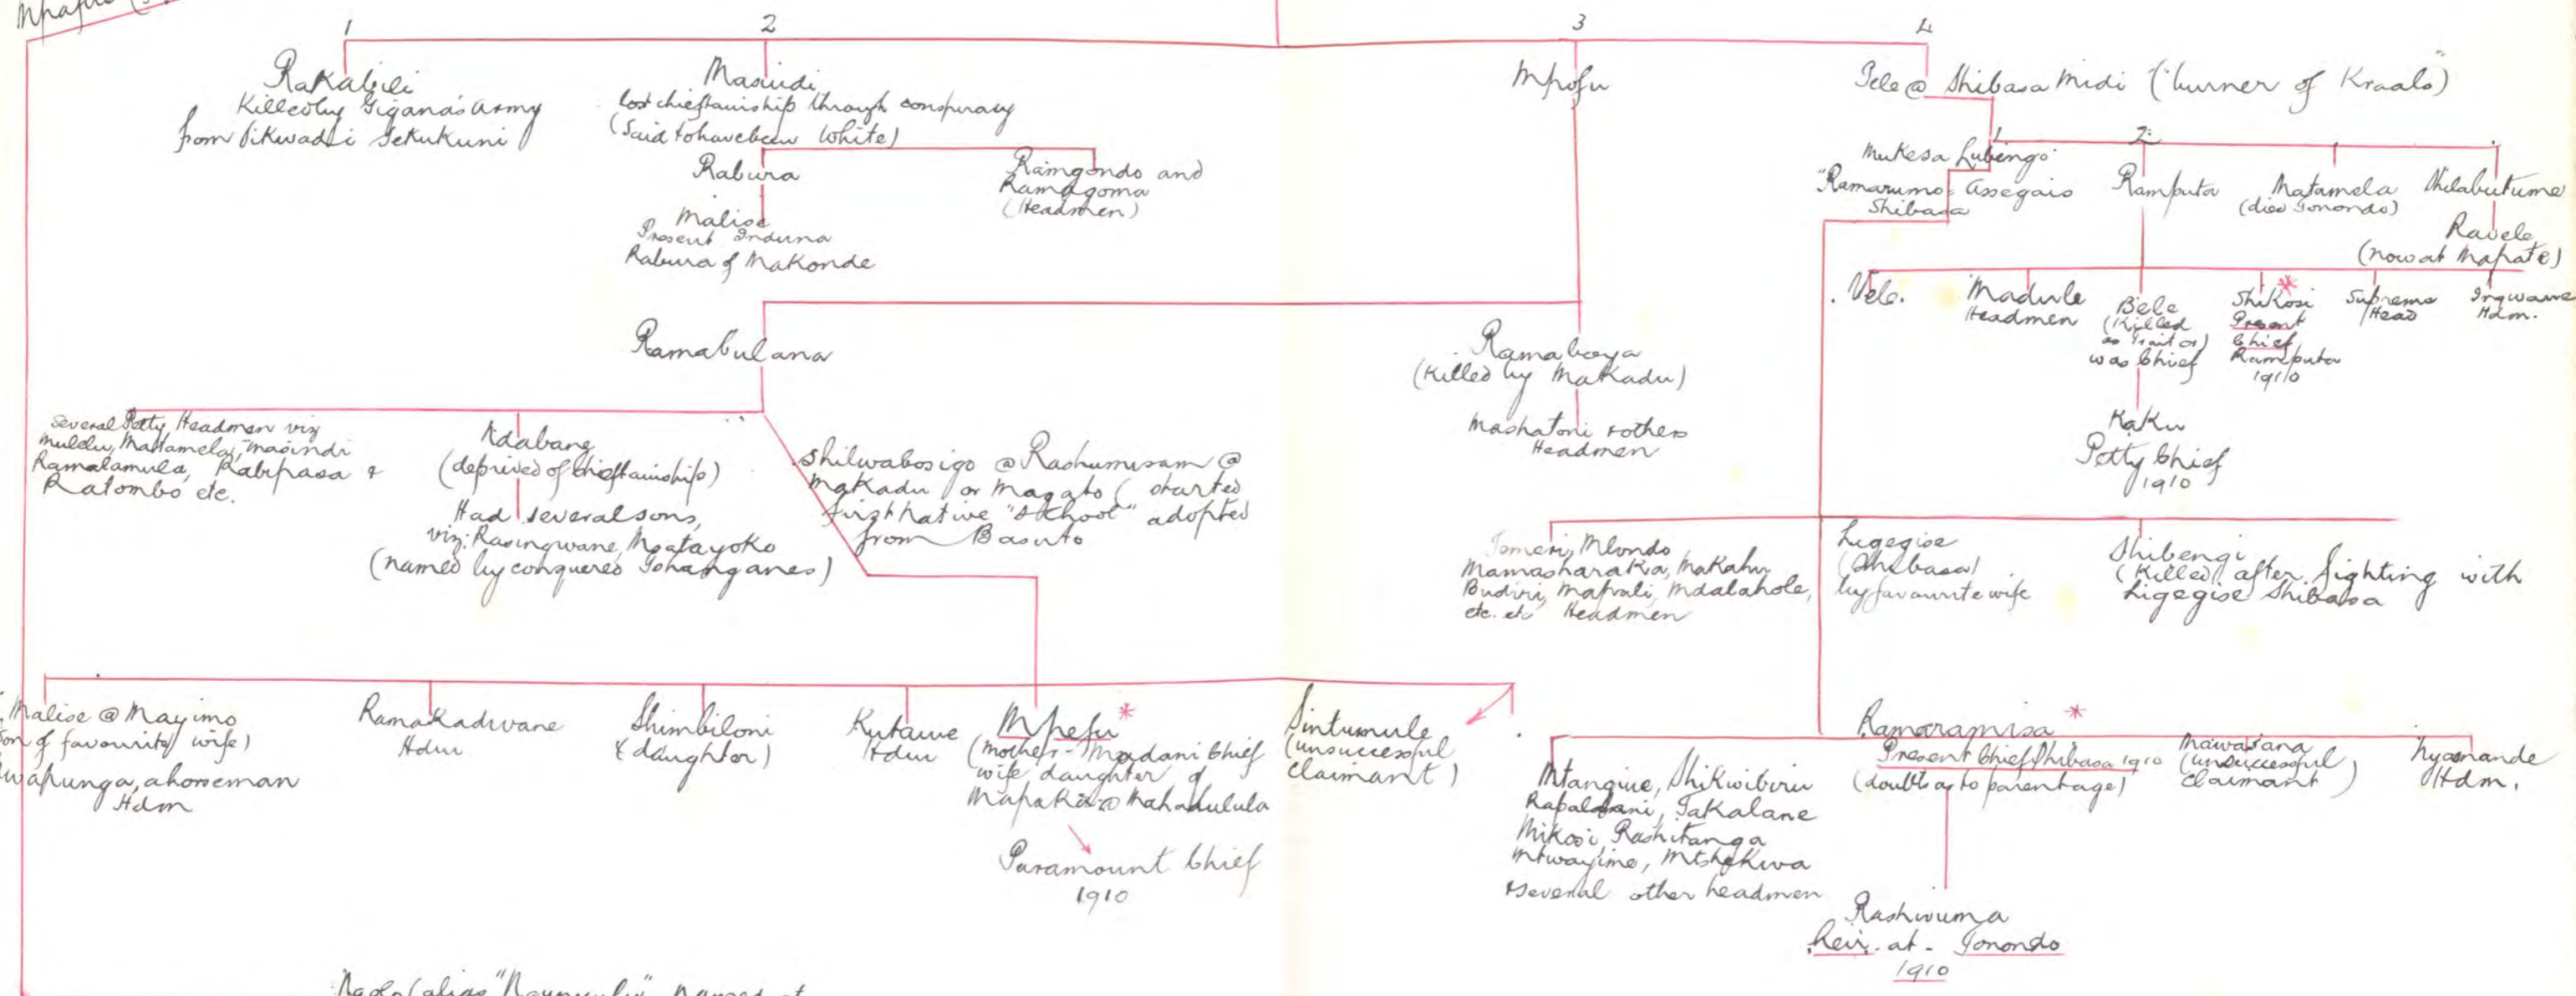 1
2
3
4
Rakalili
Killed by Gigana's Army
from Pikwadi Sekukuni
Masindi
lost chieftainship through conspiracy
(Said to have been White)
Rabura
Malise
Present Induna
Rabura of Makonde
Ramgondo and
Ramagoma
(Headmen)
Mpofu
Pele @ Shibasa Midi ("burner of Kraals")
1
2
Mukesa Lubengo
"Ramarumo = Assegais
Shibasa
Ramputa
Matamela
(died Gonondo)
Ravele
(now at Mapate)
Vele.
Madule
Headmen
Bele
(Killed
as Traitor)
was Chief
Shikosi *
Present
Chief
Ramputa
1910
Supreme
Head
Ingwame
Hdm.
Kaku
Petty Chief
1910
Ramabulana
Ramaboya
(Killed by Makadu)
Mashatoni & others
Headmen
Several Petty Headmen viz
Muldu, Mattamela, Masindi
Ramalamula, Rabipasa &
Ratombo etc.
Ndabang
(deprived of chieftainship)
Had several sons,
viz: Rasingwane, Msatayoko
(named by conquered Tshanganes)
Shilwabosigo @ Rashumusam @
Makadu or Magato (started
first native "School" adopted
from Basuto
Tomeri, Mlondo
Mamasharaka, Makahu
Budiri, Mafuali, Mdalahole,
etc. etc Headmen
Ligegise
(Shibasa)
by favourite wife
Shibengi
(Killed after fighting with
Ligegise Shibasa
Malise @ Mayimo
son of favourite wife)
a horseman
Hdm
Ramakadwane
Hdm
Shimbiloni
(daughter)
Kutame
Hdm
Mpefu *
(mother - Madani Chief
wife daughter of
Mapaka @ Mahadulula
Paramount Chief
1910
Sintumule
(unsuccessful
Claimant)
Mtangwe, Shikwibiru
Rapaldani, Takalane
Mikosi, Rashitanga
Mtwayimo, Mtshekwa
& several other headmen
Ramaramisa *
Present Chief Shibasa 1910
(doubt as to parentage)
Mawasana
(unsuccessful
Claimant)
Nyamande
Hdm.
Rashwuma
Heir - at - Gonondo
1910